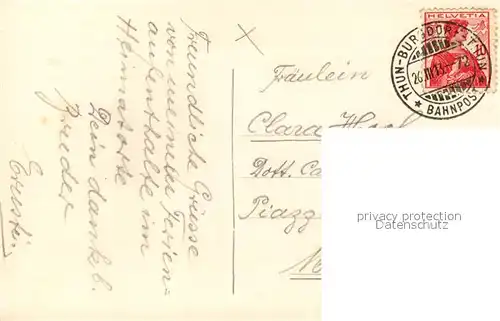 Freundliche Grüsse
von meinem Ferien=
aufenthalte im
Heimatorte
Dein dankb.
Bruder
Ernst.
×
Fräulein
Clara
Dott. Ca
Piazz
HELVETIA
THUN-BURGDORF-THUN
BAHNPOST
privacy protection
oldthing.com